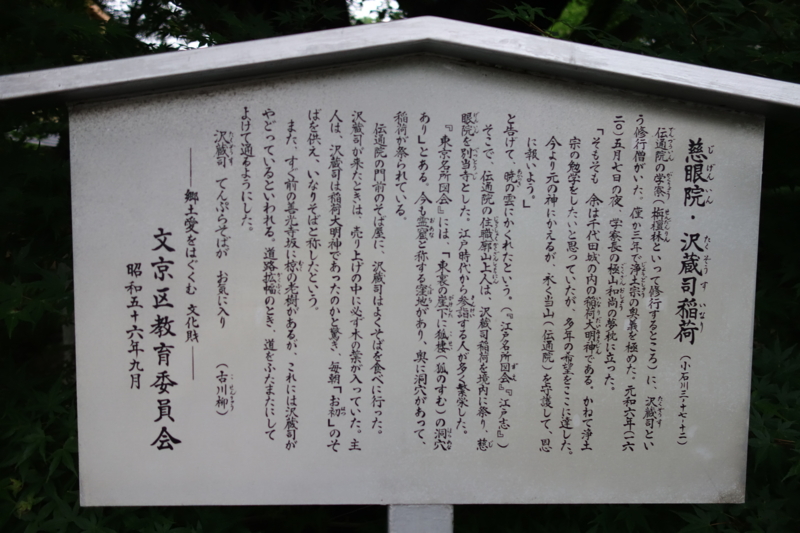 慈眼院・沢蔵司稲荷 (小石川三-十七-十二)
伝通院の学寮(栴檀林といって修行するところ)に、沢蔵司とい
う修行僧がいた。僅か三年で浄土宗の奥義を極めた。元和六年(一六
二〇)五月七日の夜、学寮長の極山和尚の夢枕に立った。
「そもそも 余は千代田城の内の稲荷大明神である。かねて浄土
宗の勉学をしたいと思っていたが、多年の希望をここに達した。
今より元の神にかえるが、永く当山(伝通院)を守護して、恩
に報いよう。」
と告げて、暁の雲にかくれたという。(『江戸名所図会』『江戸志』)
そこで、伝通院の住職廓山上人は、沢蔵司稲荷を境内に祭り、慈
眼院を別当寺とした。江戸時代から参詣する人が多く繁栄した。
『東京名所図会』には、「東裏の崖下に狐棲(狐のすむ)の洞穴
あり」とある。今も霊窟と称する窪地があり、奥に洞穴があって、
稲荷が祭られている。
伝通院の門前のそば屋に、沢蔵司はよくそばを食べに行った。
沢蔵司が来たときは、売り上げの中に必ず木の葉が入っていた。主
人は、沢蔵司は稲荷大明神であったのかと驚き、毎朝「お初」のそ
ばを供え、いなりそばと称したという。
また、すぐ前の善光寺坂に椋の老樹があるが、これには沢蔵司が
やどっているといわれる。道路拡幅のとき、道をふたまたにして
よけて通るようにした。
沢蔵司 てんぷらそばが お気に入り (古川柳)
―郷土愛をはぐくむ 文化財―
文京区教育委員会
昭和五十六年九月